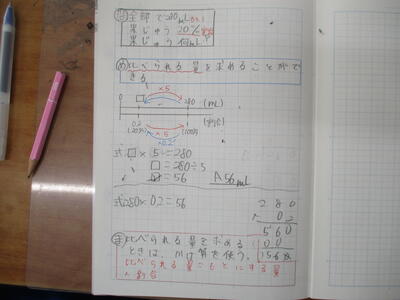 問 全部で280mL入り
果じゅう 20%
果じゅう 何mL
め 比べられる量を求めることがで
きる。
×5
0 □ 280 (mL)
0.2 1 (割合)
(20%) (100%)
×5
×0.2
式 □×5=280
□=280÷5
□=56 A56mL
式280×0.2=56
280
× 0.2
560
000
ま 比べられる量を求める
ときは、
算を使う。
比べられる量=もとにする量
×割合